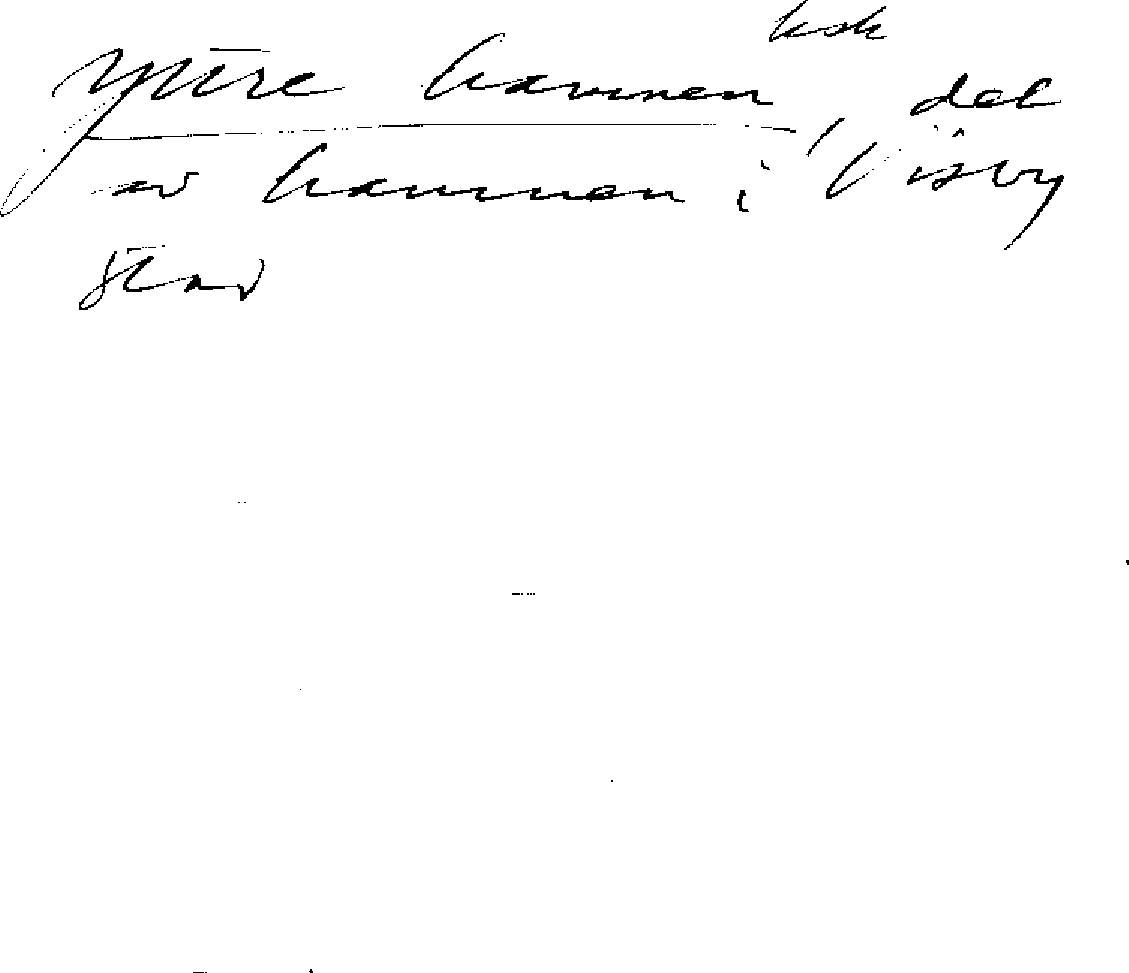 ksk
Yttre hamnen, del
av hamnen i Visby
stad